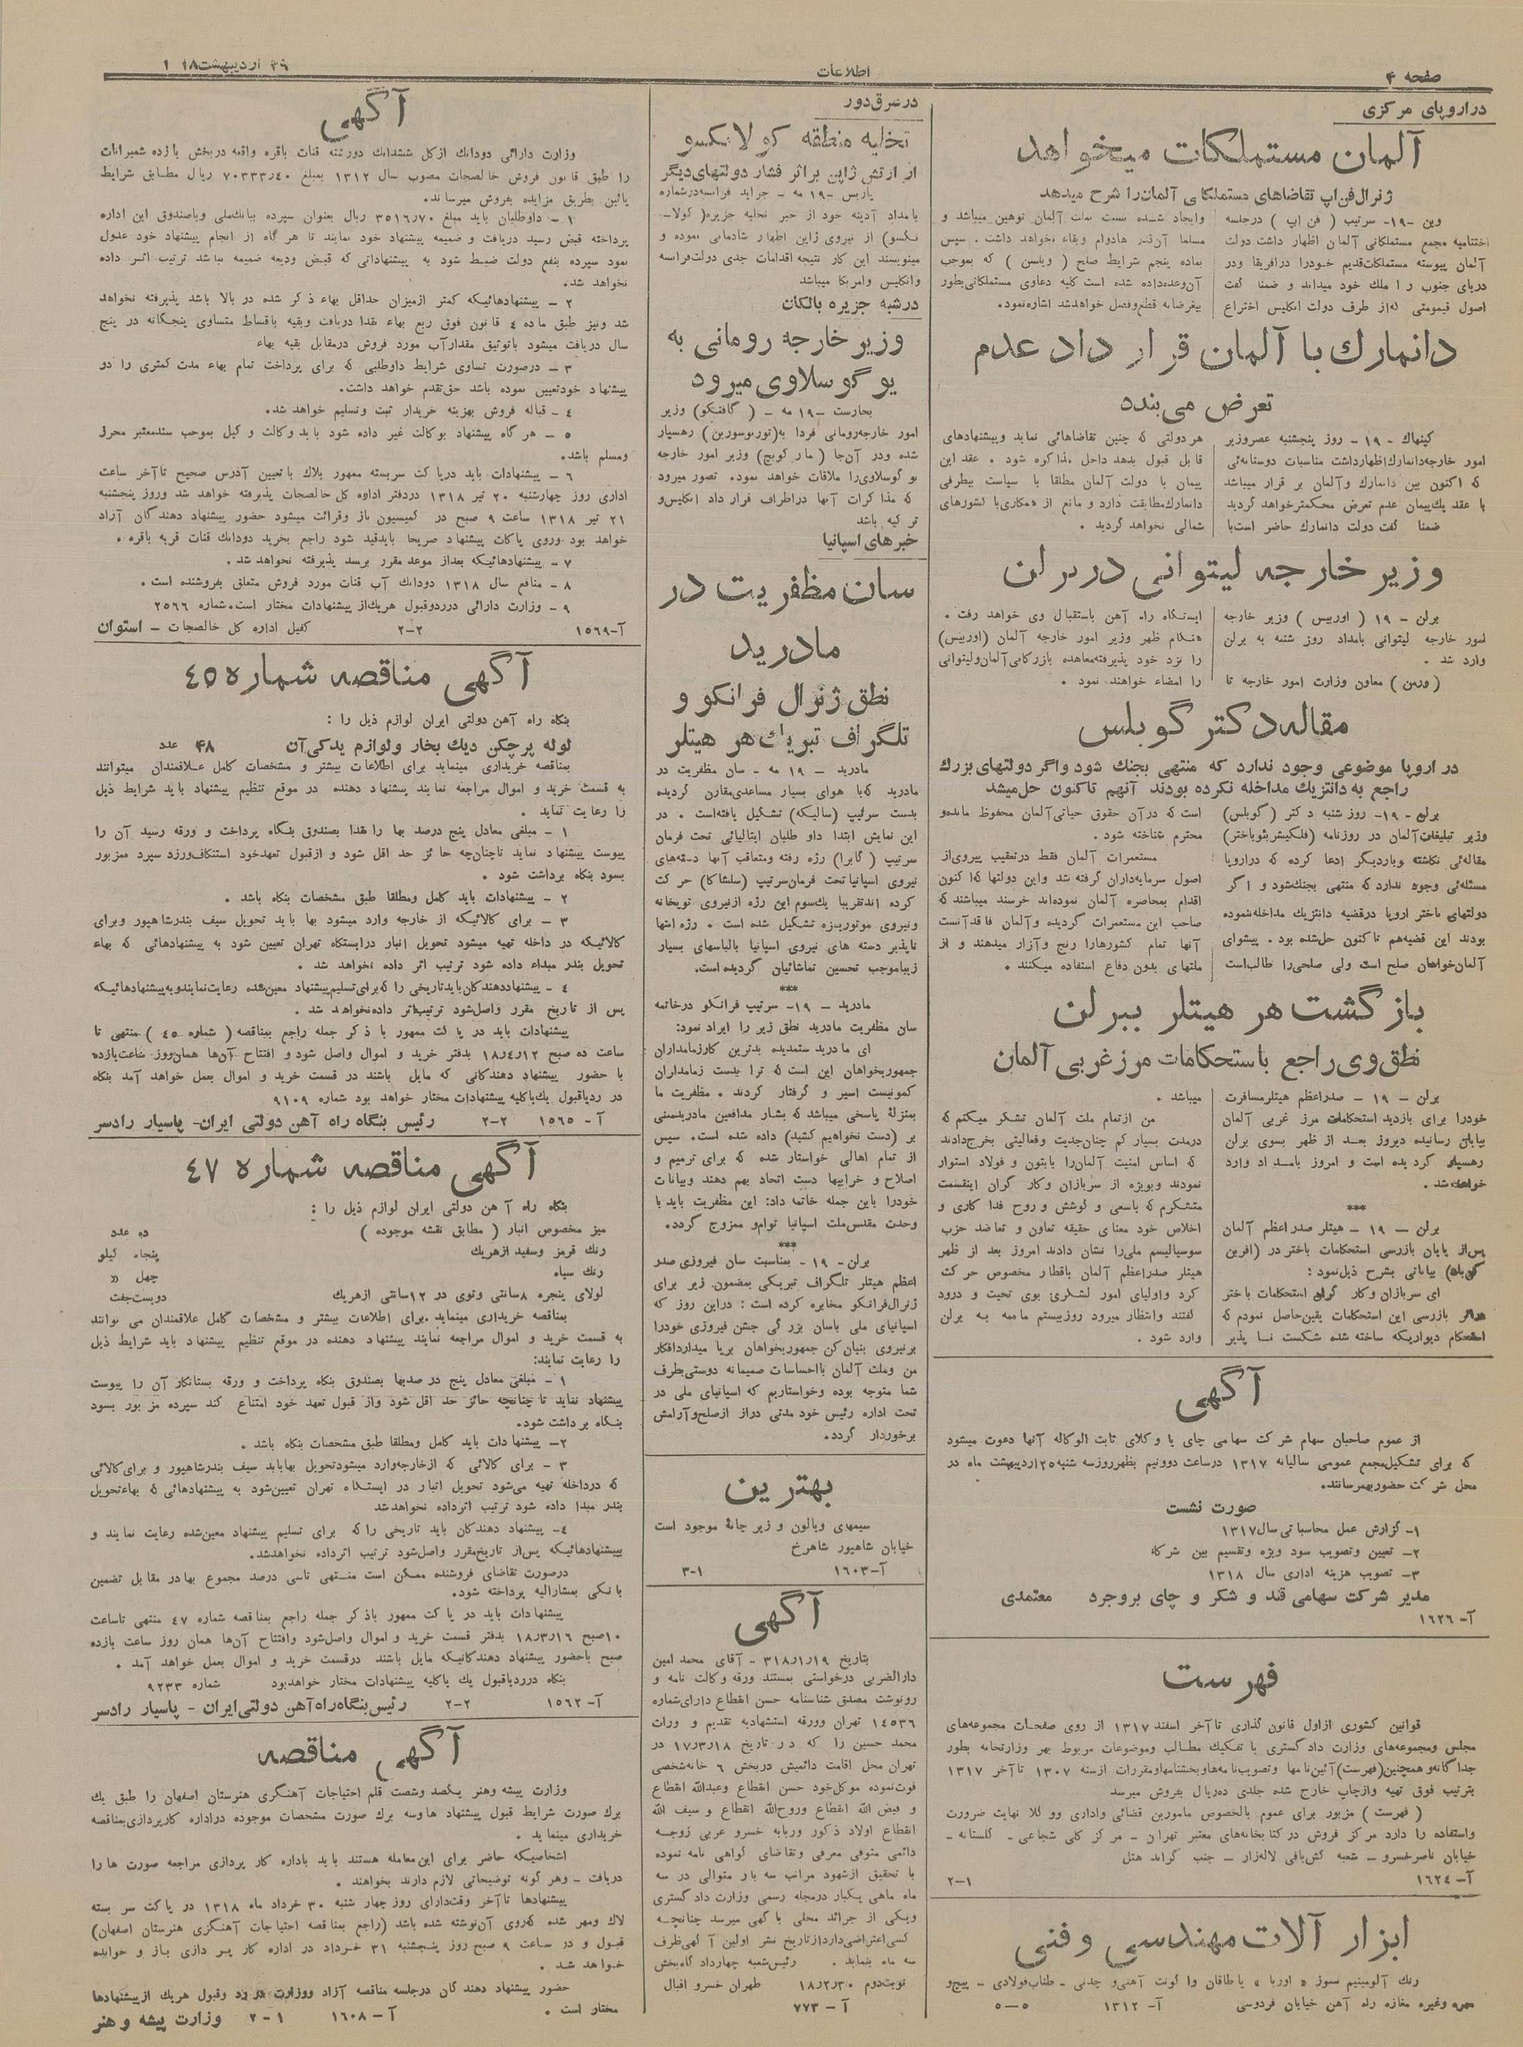 صفحه ۴
اطلاعات
۲۹ اردیبهشت ۱۳۱۸
در اروپای مرکزی
آلمان مستملکات میخواهد
ژنرال فن اپ تقاضاهای مستملکاتی آلمان را شرح میدهد
وین -۱۹- سرتیپ ( فن اپ ) درجلسه
اختتامیه مجمع مستملکاتی آلمان اظهار داشت دولت
آلمان پیوسته مستملکات قدیم خودرا درافریقا ودر
دریای جنوب را ملک خود میداند و ضمنا گفت
اصول قیمومتی که از طرف دولت انگلیس اختراع
وایجاد شده نسبت بملت آلمان توهین میباشد و
مسلما آنقدر هادوام وبقاء نخواهد داشت . سپس
بماده پنجم شرایط صلح ( ویلسن ) که بموجب
آن وعده داده شده است کلیه دعاوی مستملکاتی بطور
بیغرضانه قطع وفصل خواهد شد اشاره نمود.
دانمارك با آلمان قرار داد عدم
تعرض می بندد
کپنهاك -۱۹- روز پنجشنبه عصر وزیر
امور خارجه دانمارك اظهار داشت مناسبات دوستانه ئی
که اکنون بین دانمارك وآلمان بر قرار میباشد
با عقد یك پیمان عدم تعرض محکمتر خواهد گردید
ضمنا گفت دولت دانمارك حاضر است با
هر دولتی که چنین تقاضاهائی نماید وپیشنهادهای
قابل قبول بدهد داخل مذاکره شود . عقد این
پیمان با دولت آلمان مطلقا با سیاست بیطرفی
دانمارك مطابقت دارد و مانع از همکاری با کشورهای
شمالی نخواهد گردید .
وزیر خارجه لیتوانی در برلن
برلن - ۱۹ ( اوربیس ) وزیر خارجه
امور خارجه لیتوانی بامداد روز شنبه به برلن
وارد شد .
( ورمن ) معاون وزارت امور خارجه تا
ایستگاه راه آهن باستقبال وی خواهد رفت .
هنگام ظهر وزیر امور خارجه آلمان (اوربیس)
را نزد خود پذیرفته معاهده بازرگانی آلمان ولیتوانی
را امضاء خواهند نمود .
مقاله دکتر گوبلس
در اروپا موضوعی وجود ندارد که منتهی بجنك شود واگر دولتهای بزرك
راجع به دانتزیك مداخله نکرده بودند آنهم تاکنون حل میشد
برلن -۱۹- روز شنبه دکتر (گوبلس)
وزیر تبلیغات آلمان در روزنامه (فلکیشر بئوباختر)
مقاله ئی نگاشته وباردیگر ادعا کرده که دراروپا
مسئله ئی وجود ندارد که منتهی بجنك شود و اگر
دولتهای باختر اروپا درقضیه دانتزیك مداخله نموده
بودند این قضیه هم تاکنون حل شده بود . پیشوای
آلمان خواهان صلح است ولی صلحی را طالب است
است که درآن حقوق حیاتی آلمان محفوظ مانده و
محترم شناخته شود.
مستعمرات آلمان فقط درتعقیب پیروی از
اصول سرمایه داران گرفته شد واین دولتها که اکنون
اقدام بمحاصره آلمان نموده اند خرسند میباشند که
صاحب این مستعمرات گردیده وآلمان فاقد آنست
آنها تمام کشورها را رنج وآزار میدهند و از
ملتهای بدون دفاع استفاده میکنند .
بازگشت هر هیتلر ببرلن
نطق وی راجع باستحکامات مرز غربی آلمان
برلن - ۱۹ - صدر اعظم هیتلر مسافرت
خودرا برای بازدید استحکامات مرز غربی آلمان
بپایان رسانیده دیروز بعد از ظهر بسوی برلن
رهسپار گردیده است و امروز بامداد وارد
خواهد شد .
***
برلن - ۱۹ - هیتلر صدر اعظم آلمان
پس از پایان بازرسی استحکامات باختر در
بیاناتی بشرح ذیل نمود :
ای سربازان وکارگران استحکامات باختر
بازرسی این استحکامات یقین حاصل نمودم که
استحکام دیواریکه ساخته شده شکست ناپذیر
میباشد .
من ازتمام ملت آلمان تشکر میکنم که
درمدت بسیار کم چنان جدیت وفعالیتی بخرج دادند
که اساس امنیت آلمان را بابتون و فولاد استوار
نمودند وبویژه از سربازان وکارگران اینقسمت
متشکرم که باسعی و کوشش و روح فداکاری و
اخلاص خود معنای حقیقه تعاون و تعاضد حزب
سوسیالیسم ملی را نشان دادند امروز بعد از ظهر
هیتلر صدر اعظم آلمان باقطار مخصوص حرکت
کرد واولیای امور لشگری بوی تحیت و درود
گفتند وانتظار میرود روز بیستم ماه مه به برلن
وارد شود .
آگهی
از عموم صاحبان سهام شرکت سهامی چای یا وکلای ثابت الوکاله آنها دعوت میشود
که برای تشکیل مجمع عمومی سالیانه ۱۳۱۷ درساعت دوونیم بظهر روز سه شنبه ۲۵ اردیبهشت ماه در
محل شرکت حضور بهمرسانند.
صورت نشست
۱- گزارش عمل محاسباتی سال ۱۳۱۷
۲- تعیین وتصویب سود ویژه وتقسیم بین شرکاء
۳- تصویب هزینه اداری سال ۱۳۱۸
مدیر شرکت سهامی قند و شکر و چای بروجرد معتمدی
آ- ۱۶۲۶
فهرست
قوانین کشوری ازاول قانون گذاری تا آخر اسفند ۱۳۱۷ از روی صفحات مجموعه های
مجلس ومجموعه های وزارت دادگستری با تفکیك مطالب وموضوعات مربوط بهر وزارتخانه بطور
جداگانه وهمچنین (فهرست) آئین نامها وتصویب نامه ها وبخشنامها ومقررات ازسنه ۱۳۰۷ تا آخر ۱۳۱۷
بترتیب فوق تهیه وازچاپ خارج شده جلدی ده ریال بفروش میرسد
( فهرست ) مزبور برای عموم بالخصوص مامورین قضائی واداری و وکلا نهایت ضرورت
واستفاده را دارد مرکز فروش درکتابخانه های معتبر تهران - مرکز کلی شجاعی - گلستانه -
خیابان ناصرخسرو - شعبه کش بافی لاله زار - جنب گراند هتل
آ- ۱۶۲۴ ۲-۱
ابزار آلات مهندسی و فنی
رنگ آلومینیم نسوز « اوریا » یاطاقان وا گونت آهنی و چدنی - طناب فولادی - پیچ و
مهره وغیره مغازه راه آهن خیابان فردوسی آ- ۱۳۱۲ ۵-۵
در شرق دور
تخلیه منطقه کولانکسو
از ارتش ژاپن براثر فشار دولتهای دیگر
پاریس -۱۹ مه - جراید فرانسه درشماره
بامداد آدینه خود از خبر تخلیه جزیره (کولا-
نکسو) از نیروی ژاپن اظهار شادمانی نموده و
مینویسند این کار نتیجه اقدامات جدی دولت فرانسه
وانگلیس وامریکا میباشد
در شبه جزیره بالکان
وزیر خارجه رومانی به
یوگوسلاوی میرود
بخارست -۱۹ مه - ( گافنکو) وزیر
امور خارجه رومانی فردا به (تورنوسورین) رهسپار
شده ودر آنجا (مارکویچ) وزیر امور خارجه
یوگوسلاوی را ملاقات خواهد نمود. تصور میرود
که مذاکرات آنها دراطراف قرار داد انگلیس و
ترکیه باشد
خبرهای اسپانیا
سان مظفریت در
مادرید
نطق ژنرال فرانکو و
تلگراف تبریك هر هیتلر
مادرید - ۱۹ مه - سان مظفریت در
مادرید که با هوای بسیار مساعدی مقارن گردیده
بدست سرتیپ (سالیکه) تشکیل یافته است . در
این نمایش ابتدا داو طلبان ایتالیائی تحت فرمان
سرتیپ ( گابرا ) رژه رفته ومتعاقب آنها دسته های
نیروی اسپانیا تحت فرمان سرتیپ (سلشاگا) حرکت
کرده اند تقریبا یك سوم این رژه ازنیروی توپخانه
ونیروی موتوریزه تشکیل شده است . رژه انتها
ناپذیر دسته های نیروی اسپانیا بالباسهای بسیار
زیبا موجب تحسین تماشائیان گردیده است.
***
مادرید - ۱۹- سرتیپ فرانکو درخاتمه
سان مظفریت مادرید نطق زیر را ایراد نمود:
ای مادرید ستمدیده بدترین کار زمامداران
جمهوریخواهان این است که ترا بدست زمامداران
کمونیست اسیر و گرفتار کردند . مظفریت ما
بمنزلهٔ پاسخی میباشد که بشار مدافعین مادرید مبنی
بر (دست نخواهیم کشید) داده شده است. سپس
از تمام اهالی خواستار شده که برای ترمیم و
اصلاح و خرابیها دست اتحاد بهم دهند وبیانات
خودرا باین جمله خاتمه داد: این مظفریت باید با
وحدت مقدس ملت اسپانیا توام و ممزوج گردد.
***
برلن -۱۹- بمناسبت سان فیروزی صدر
اعظم هیتلر تلگراف تبریکی بمضمون زیر برای
ژنرال فرانکو مخابره کرده است : دراین روز که
اسپانیای ملی باسان بزرگی جشن فیروزی خودرا
برنیروی بنیان کن جمهوریخواهان برپا میدارد افکار
من وملت آلمان بااحساسات صمیمانه دوستی بطرف
شما متوجه بوده وخواستاریم که اسپانیای ملی در
تحت اداره رئیس خود مدتی دراز ازصلح وآرامش
برخوردار گردد.
بهترین
سیمهای ویالون و زیر چانهٔ موجود است
خیابان شاهپور شاهرخ
آ- ۱۶۰۳ ۳-۱
آگهی
بتاریخ ۳۱۸/۱/۱۹ - آقای محمد امین
دارالضربی درخواستی بمستند ورقه وکالت نامه و
رونوشت مصدق شناسنامه حسن انقطاع دارای شماره
۱۴۵۳۶ تهران وورقه استشهادیه تقدیم و وراث
محمد حسین را که در تاریخ ۱۷/۳/۱۸ در
تهران محل اقامت دائمیش دربخش ۶ خانه شخصی
فوت نموده موکل خود حسن انقطاع وعبدالله انقطاع
و فیض الله انقطاع وروح الله انقطاع و سیف الله
انقطاع اولاد ذکور وربابه خسرو عربی زوجه
دائمی متوفی معرفی وتقاضای گواهی نامه نموده
با تحقیق ازشهود مراتب سه بار متوالی در سه
ماه ماهی یکبار درمجله رسمی وزارت دادگستری
ویکی از جرائد محلی با گهی میرسد چنانچه
کسی اعتراضی دارد ازتاریخ نشر اولین آگهی ظرف
سه ماه بنماید . رئیس شعبه چهار دادگاه بخش
نوبت دوم ۱۸/۲/۳۰ طهران خسرو اقبال
آ - ۷۷۳
آگهی
وزارت دارائی دودانك ازکل ششدانك دورشته قنات باقره واقعه دربخش یازده شمیرانات
را طبق قانون فروش خالصجات مصوب سال ۱۳۱۲ بمبلغ ۷۰۳۳۳/۴۰ ریال مطابق شرایط
پائین بطریق مزایده بفروش میرساند.
۱ - داوطلبان باید مبلغ ۳۵۱۶/۷۰ ریال بعنوان سپرده ببانك ملی ویاصندوق این اداره
پرداخته قبض رسید دریافت و ضمیمه پیشنهاد خود نمایند تا هر گاه از انجام پیشنهاد خود عدول
نمود سپرده بنفع دولت ضبط شود به پیشنهاداتی که قبض ودیعه ضمیمه نباشد ترتیب اثر داده
نخواهد شد.
۲ - پیشنهادهائیکه کمتر ازمیزان حداقل بهاء ذکر شده در بالا باشد پذیرفته نخواهد
شد ونیز طبق ماده ٤ قانون فوق ربع بهاء نقدا دریافت وبقیه باقساط متساوی پنجگانه در پنج
سال دریافت میشود باتوثیق مقدار آب مورد فروش درمقابل بقیه بهاء
۳ - درصورت تساوی شرایط داوطلبی که برای پرداخت تمام بهاء مدت کمتری را در
پیشنهاد خود تعیین نموده باشد حق تقدم خواهد داشت.
٤ - قباله فروش بهزینه خریدار ثبت وتسلیم خواهد شد.
۵ - هر گاه پیشنهاد بوکالت غیر داده شود باید وکالت و کیل بموجب سند معتبر محرز
ومسلم باشد.
۶ - پیشنهادات باید درپاکت سربسته ممهور بلاك باتعیین آدرس صحیح تا آخر ساعت
اداری روز چهارشنبه ۲۰ تیر ۱۳۱۸ دردفتر اداره کل خالصجات پذیرفته خواهد شد وروز پنجشنبه
۲۱ تیر ۱۳۱۸ ساعت ۹ صبح در کمیسیون باز وقرائت میشود حضور پیشنهاد دهندگان آزاد
خواهد بود وروی پاکات پیشنهاد صریحا بایدقید شود راجع بخرید دودانك قنات قریه باقره .
۷ - پیشنهادهائیکه بعداز موعد مقرر برسد پذیرفته نخواهد شد .
۸ - منافع سال ۱۳۱۸ دودانك آب قنات مورد فروش متعلق بفروشنده است .
۹ - وزارت دارائی دررد وقبول هریك ازپیشنهادات مختار است. شماره ۲۵۶۶
آ- ۱۵۶۹ ۲-۲ کفیل اداره کل خالصجات - استوان
آگهی مناقصه شماره ٤۵
بنگاه راه آهن دولتی ایران لوازم ذیل را :
لوله پرچکن دیك بخار ولوازم یدکی آن ۴۸ عدد
بمناقصه خریداری مینماید برای اطلاعات بیشتر و مشخصات کامل علاقمندان میتوانند
به قسمت خرید و اموال مراجعه نمایند پیشنهاد دهنده در موقع تنظیم پیشنهاد باید شرایط ذیل
را رعایت نماید .
۱ - مبلغی معادل پنج درصد بها را نقدا بصندوق بنگاه پرداخت و ورقه رسید آن را
پیوست پیشنهاد نماید تا چنانچه حائز حد اقل شود و ازقبول تعهد خود استنکاف ورزد سپرده مزبور
بسود بنگاه برداشت شود .
۲ - پیشنهادات باید کامل ومطلقا طبق مشخصات بنگاه باشد .
۳ - برای کالائیکه از خارجه وارد میشود بها باید تحویل سیف بندر شاهپور وبرای
کالائیکه در داخله تهیه میشود تحویل انبار درایستگاه تهران تعیین شود به پیشنهادهائی که بهاء
تحویل بندر مبداء داده شود ترتیب اثر داده نخواهد شد .
٤ - پیشنهاددهندگان باید تاریخی را که برای تسلیم پیشنهاد معین شده رعایت نمایند و به پیشنهادهائیکه
پس از تاریخ مقرر واصل شود ترتیب اثر داده نخواهد شد .
پیشنهادات باید در پاکت ممهور با ذکر جمله راجع بمناقصه ( شماره ٤۵ ) منتهی تا
ساعت ده صبح ۱۸/٤/۱۲ بدفتر خرید و اموال واصل شود و افتتاح آن ها همان روز ساعت یازده
با حضور پیشنهاد دهندگانی که مایل باشند در قسمت خرید و اموال بعمل خواهد آمد بنگاه
در رد یا قبول یك یا کلیه پیشنهادات مختار خواهد بود شماره ۹۱۰۹
آ - ۱۵۶۵ ۲-۲ رئیس بنگاه راه آهن دولتی ایران - پاسیار رادسر
آگهی مناقصه شماره ٤۷
بنگاه راه آهن دولتی ایران لوازم ذیل را :
میز مخصوص انبار ( مطابق نقشه موجوده ) ده عدد
رنك قرمز وسفید ازهریك پنجاه کیلو
رنك سیاه چهل »
لولای پنجره ۸ سانتی وتوی در ۱۲ سانتی ازهریك دویست جفت
بمناقصه خریداری مینماید .برای اطلاعات بیشتر و مشخصات کامل علاقمندان می توانند
به قسمت خرید و اموال مراجعه نمایند پیشنهاد دهنده در موقع تنظیم پیشنهاد باید شرایط ذیل
را رعایت نمایند:
۱ - مبلغی معادل پنج در صد بها بصندوق بنگاه پرداخت و ورقه بستانکار آن را پیوست
پیشنهاد نماید تا چنانچه حائز حد اقل شود واز قبول تعهد خود امتناع کند سپرده مزبور بسود
بنگاه برداشت شود.
۲- پیشنهادات باید کامل ومطلقا طبق مشخصات بنگاه باشد .
۳ - برای کالائی که ازخارجه وارد میشود تحویل بها باید سیف بندر شاهپور و برای کالائی
که درداخله تهیه می شود تحویل انبار در ایستگاه تهران تعیین شود به پیشنهادهائی که بهاء تحویل
بندر مبدا داده شود ترتیب اثر داده نخواهد شد
٤- پیشنهاد دهندگان باید تاریخی را که برای تسلیم پیشنهاد معین شده رعایت نمایند و
بپیشنهادهائیکه پس از تاریخ مقرر واصل شود ترتیب اثر داده نخواهد شد.
درصورت تقاضای فروشنده ممکن است منتهی تا سی درصد مجموع بها در مقابل تضمین
بانکی بمشارالیه پرداخته شود.
پیشنهادات باید در پاکت ممهور باذکر جمله راجع بمناقصه شماره ٤۷ منتهی تا ساعت
۱۰ صبح ۱۸/۳/۱۶ بدفتر قسمت خرید و اموال واصل شود وافتتاح آن ها همان روز ساعت یازده
صبح باحضور پیشنهاد دهندگانیکه مایل باشند درقسمت خرید و اموال بعمل خواهد آمد .
بنگاه دررد یا قبول یك یاکلیه پیشنهادات مختار خواهد بود شماره ۹۲۳۳
آ- ۱۵۶۲ ۲-۲ رئیس بنگاه راه آهن دولتی ایران - پاسیار رادسر
آگهی مناقصه
وزارت پیشه وهنر یکصد وشصت قلم احتیاجات آهنگری هنرستان اصفهان را طبق یك
برك صورت شرایط قبول پیشنهاد ها وسه برك صورت مشخصات موجوده دراداره کارپردازی بمناقصه
خریداری مینماید .
اشخاصیکه حاضر برای این معامله هستند باید باداره کار پردازی مراجعه صورت ها را
دریافت - وهر گونه توضیحاتی لازم دارند بخواهند .
پیشنهادها تا آخر وقت دارای روز چهار شنبه ۳۰ خرداد ماه ۱۳۱۸ در پاکت سر بسته
لاك ومهر شده که روی آن نوشته شده باشد (راجع بمناقصه احتیاجات آهنگری هنرستان اصفهان)
قبول و در ساعت ۹ صبح روز پنجشنبه ۳۱ خرداد در اداره کار پردازی باز و خوانده
خواهد شد .
حضور پیشنهاد دهندگان درجلسه مناقصه آزاد ووزارت در رد وقبول هریك ازپیشنهادها
مختار است . آ- ۱۶۰۸ ۲-۱ وزارت پیشه و هنر